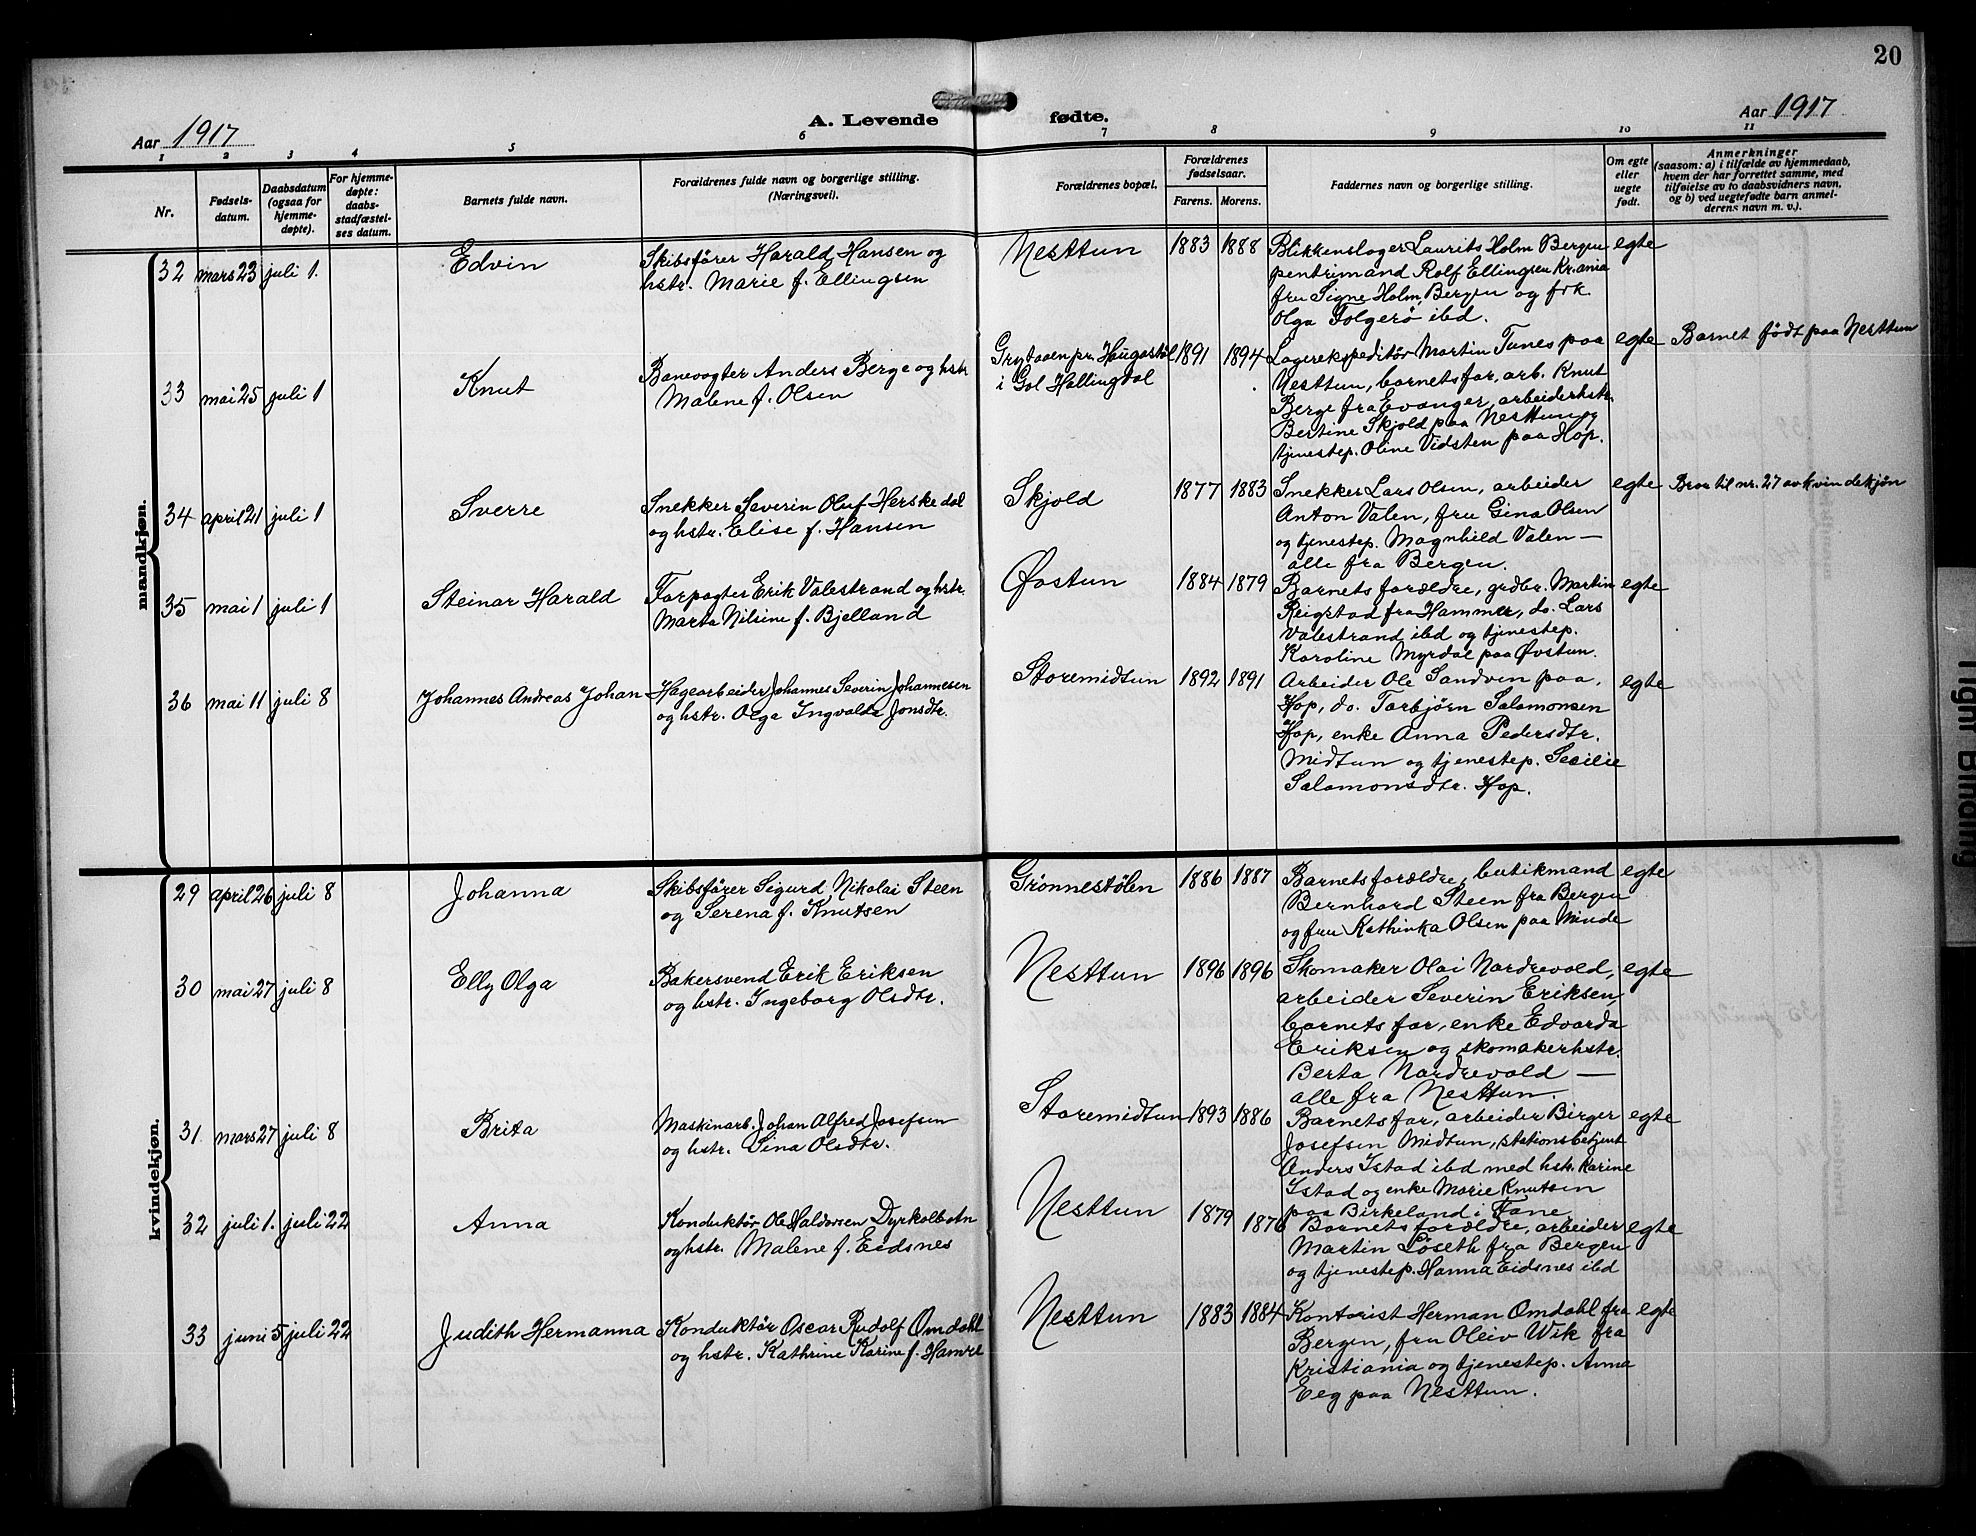 20
Aar 1917
A. Levende fødte.
Aar 1917
1 2 3 4 5 6 7 8 9 10 11
Nr.
Fødsels-
datum.
Daabsdatum
(ogsaa for
hjemme-
døpte).
For hjemme-
døpte:
daabs-
stadfæstel-
ses datum.
Barnets fulde navn.
Forældrenes fulde navn og borgerlige stilling.
(Næringsvei).
Forældrenes bopæl.
Forældrenes
fødselsaar.
Farens. Morens.
Faddernes navn og borgerlige stilling.
Om egte
eller
uegte
født.
Anmerkninger
(saasom: a) i tilfælde av hjemmedaab,
hvem der har forrettet samme, med
tilføielse av to daabsvidners navn,
og b) ved uegtefødte barn anmel-
derens navn m. v.).
mandkjøn.
32 mars 23 juli 1. Edvin
Skibsfører Harald Hansen og
hstr. Marie f. Ellingsen
Nesttun 1883 1888
Blikkenslager Laurits Holm Bergen
pentrimand Rolf Ellingsen Kr.ania
fru Signe Holm, Bergen og frk.
Olga Folgerö ibd.
egte
33 mai 25 juli 1 Knut
Banevogter Anders Berge og hstr
Malene f. Olsen
Grytaaen pr. Haugastöl
i Gol Hallingdal
1891 1894
Lagerekspeditör Martin Tunes paa
Nesttun, barnets far, arb. Knut
Berge fra Evanger, arbeiderhstr.
Bertine Skjold paa Nesttun og
tjenestep. Oline Vidsten paa Hop.
egte
Barnet født paa Nesttun
34 april 21 juli 1 Sverre
Snekker Severin Oluf Herskedal
og hstr. Elise f. Hansen
Skjold 1877 1883
Snekker Lars Olsen, arbeider
Anton Valen, fru Gina Olsen
og tjenestep. Magnhild Valen —
alle fra Bergen.
egte
Bror til nr. 27 av kvindekjøn
35 mai 1 juli 1 Steinar Harald
Forpagter Erik Valestrand og hstr.
Marta Nilsine f. Bjelland
Øvstun 1884 1879
Barnets forældre, grdbr. Martin
Reigstad fra Hammer, do. Lars
Valestrand ibd og tjenestep.
Karoline Myrdal paa Øvstun.
egte
36 mai 11 juli 8 Johannes Andreas Johan
Hagearbeider Johannes Severin Johannesen
og hstr. Olga Ingvalda Jonsdtr.
Storemidtun 1892 1891
Arbeider Ole Sandven paa
Hop, do. Torbjørn Salamonsen
Hop, enke Anna Pedersdtr.
Midtun og tjenestep. Secilie
Salamonsdtr. Hop.
egte
kvindekjøn.
29 april 26 juli 8 Johanna
Skibsfører Sigurd Nikolai Steen
og Serena f. Knutsen
Grönnestölen 1886 1887
Barnets forældre, butikmand
Bernhard Steen fra Bergen
og fru Kathinka Olsen paa Minde
egte
30 mai 27 juli 8 Elly Olga
Bakersvend Erik Eriksen
og hstr. Ingeborg Olsdtr.
Nesttun 1896 1896
Skomaker Olai Nordrevold,
arbeider Severin Eriksen,
barnets far, enke Edvarda
Eriksen og skomakerhstr.
Berta Nordrevold —
alle fra Nesttun.
egte
31 mars 27 juli 8 Brita
Maskinarb. Johan Alfred Josefsen
og hstr. Sina Olsdtr.
Storemidtun 1893 1886
Barnets far, arbeider Birger
Josefsen Midtun, stationsbetjent
Anders Istad ibd med hstr. Karine
Istad og enke Marie Knutsen
paa Birkeland i Fane
egte
32 juli 1. juli 22 Anna
Konduktör Ole Haldorsen Dyrkolbotn
og hstr. Malene f. Eidsnes
Nesttun 1879 1876
Barnets forældre, arbeider
Martin Löseth fra Bergen
og tjenestep. Hanna Eidsnes ibd
egte
33 juni 5 juli 22 Judith Hermanna
Konduktör Oscar Rudolf Omdahl
og hstr. Kathrine Karine f. Hamre
Nesttun 1883 1884
Kontorist Herman Omdahl fra
Bergen, fru Oleiv Wik fra
Kristiania og tjenestep. Anna
Eeg paa Nesttun.
egte
Tight Binding